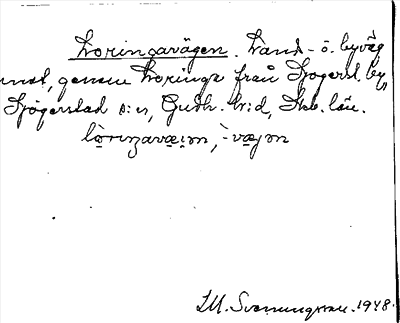 Loringavägen. Land- o. byväg
mot, genom Loringa från Sjögerst. by,
Sjögerstad s:n, Gudh. h:d, Skb. län.
lòringavæ̣ɩn, -væ̣jən
I.M. Svenningsson. 1948.